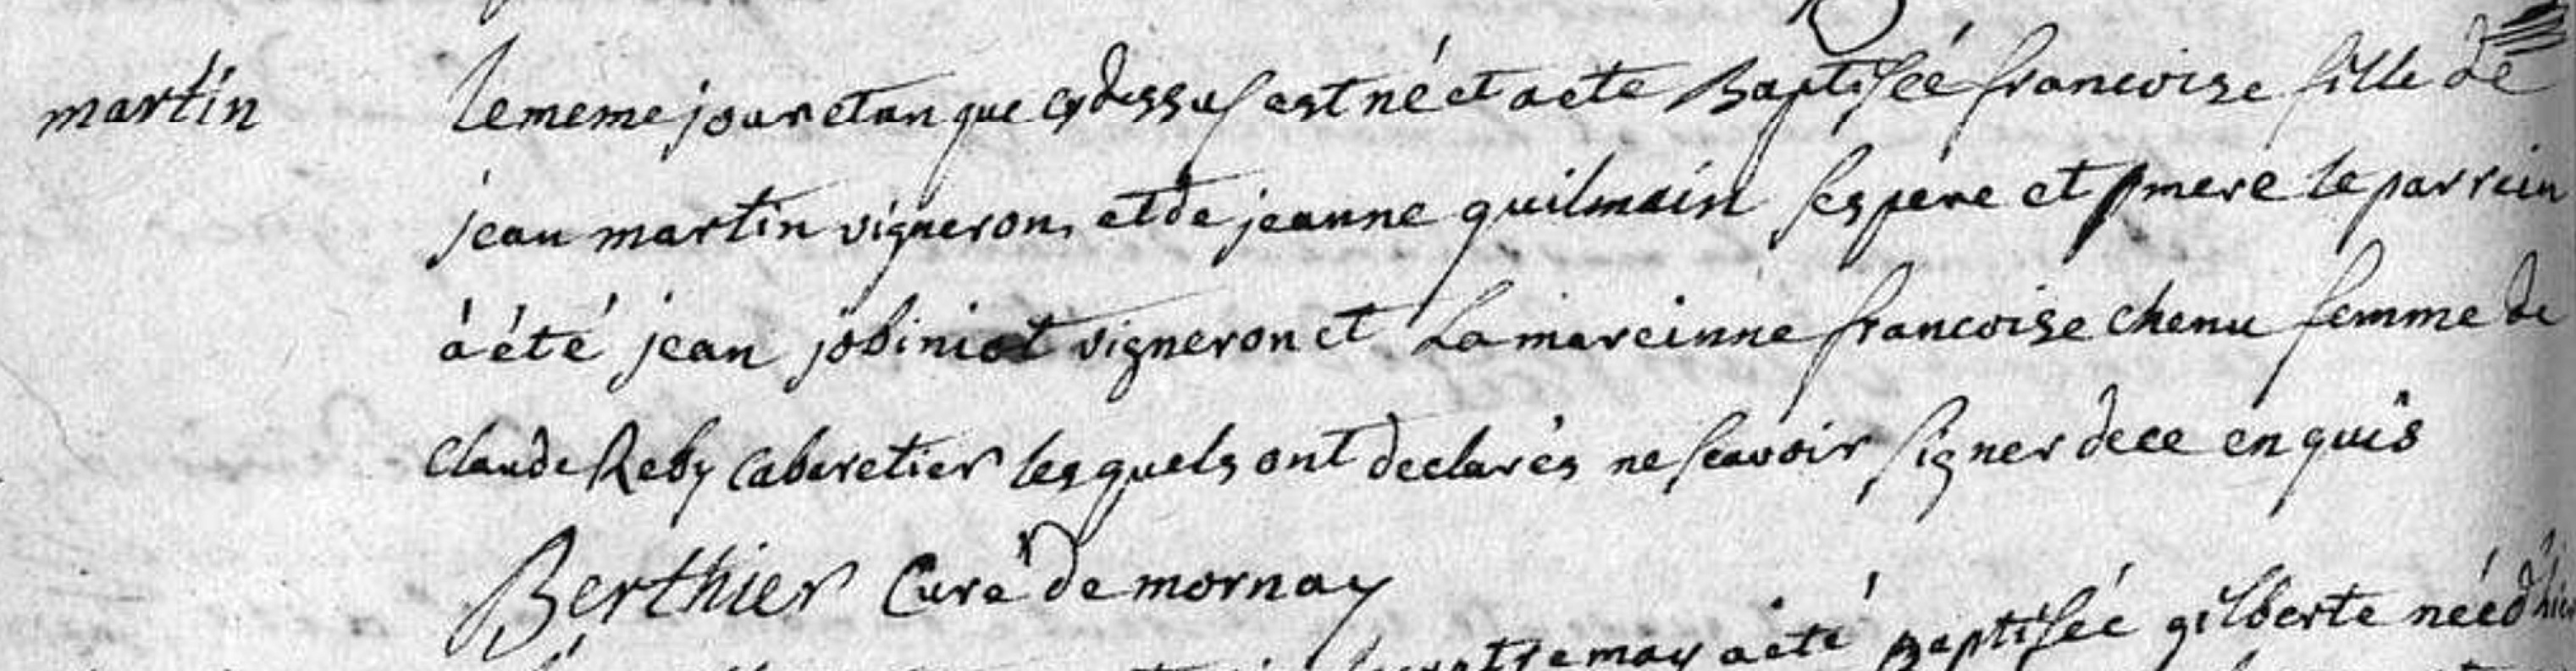 martin
le meme jour et an que cy dessus est né et a ete Baptisée francoise fille de
jean martin vigneron, et de jeanne guilmain ses pere et mere le parrein
à été jean jobiniot vigneron et La mareinne francoise chenu femme de
claude Reby cabaretier lesquels ont declarés ne scavoir signer de ce enquis
Berthier Curé de mornay
may a eté Baptisée gilberte née d'hier